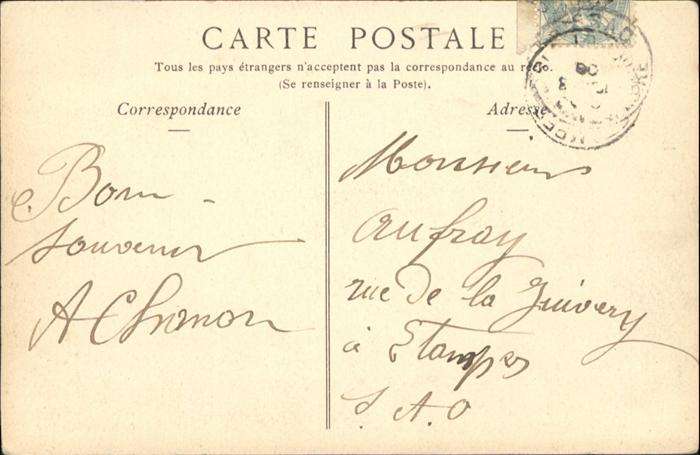 CARTE POSTALE
Tous les pays étrangers n'acceptent pas la correspondance au
(Se renseigner à la Poste).
Correspondance
Bon
Souvenir
A
Adresse
Monsieur
Aufray
rue de la
à Etampes
S. A. O